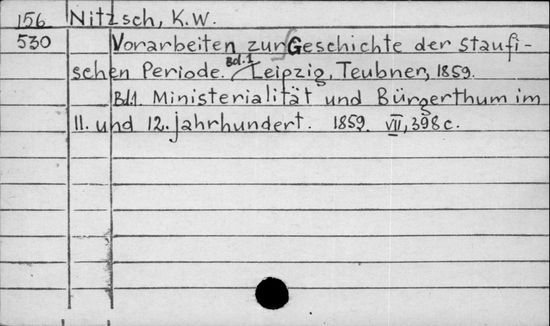 156 Nitzsch, K.W.
530 Vorarbeiten zur Geschichte der staufi-
schen Periode. Bd.1 Leipzig, Teubner, 1859.
Bd.1. Ministerialität und Bürgerthum im
11. und 12. jahrhundert. 1859. VII, 398 c.